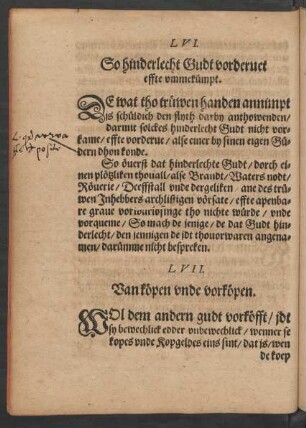 LVI.
So hinderlecht Gudt vordervet
effte vmmekümpt.
DE wat tho trüwen handen annimpt
is schüldich den flyth darby anthowenden/
darmit solckes hynderlecht Gudt nicht vor-
kame/ effte vorderve/ alse einer by sinen eigen Gü-
dern dhon konde.
So överst dat hinderlechte Gudt/ dorch ei-
nen plötzliken thovall/ alse Brandt/ Waters nodt/
Röverie/ Deeffstall vnde dergeliken/ ane des trü-
wen Inhebbers archlistigen vörsate/ effte apenba-
re grave vorwarlosinge tho nichte würde/ vnde
vorqueme/ So mach de jenige/ de dat Gudt hin-
derlecht/ den jennigen de idt thovorwaren angena-
men/ darümme nicht bespreken.
LVII.
Van köpen vnde vorköpen.
WOl dem andern gudt vorköfft/ idt
sy bewechlick edder vnbewechlick/ wenner se
kopes vnde Kopgeldes eins sint/ dat is/ wen
de koep